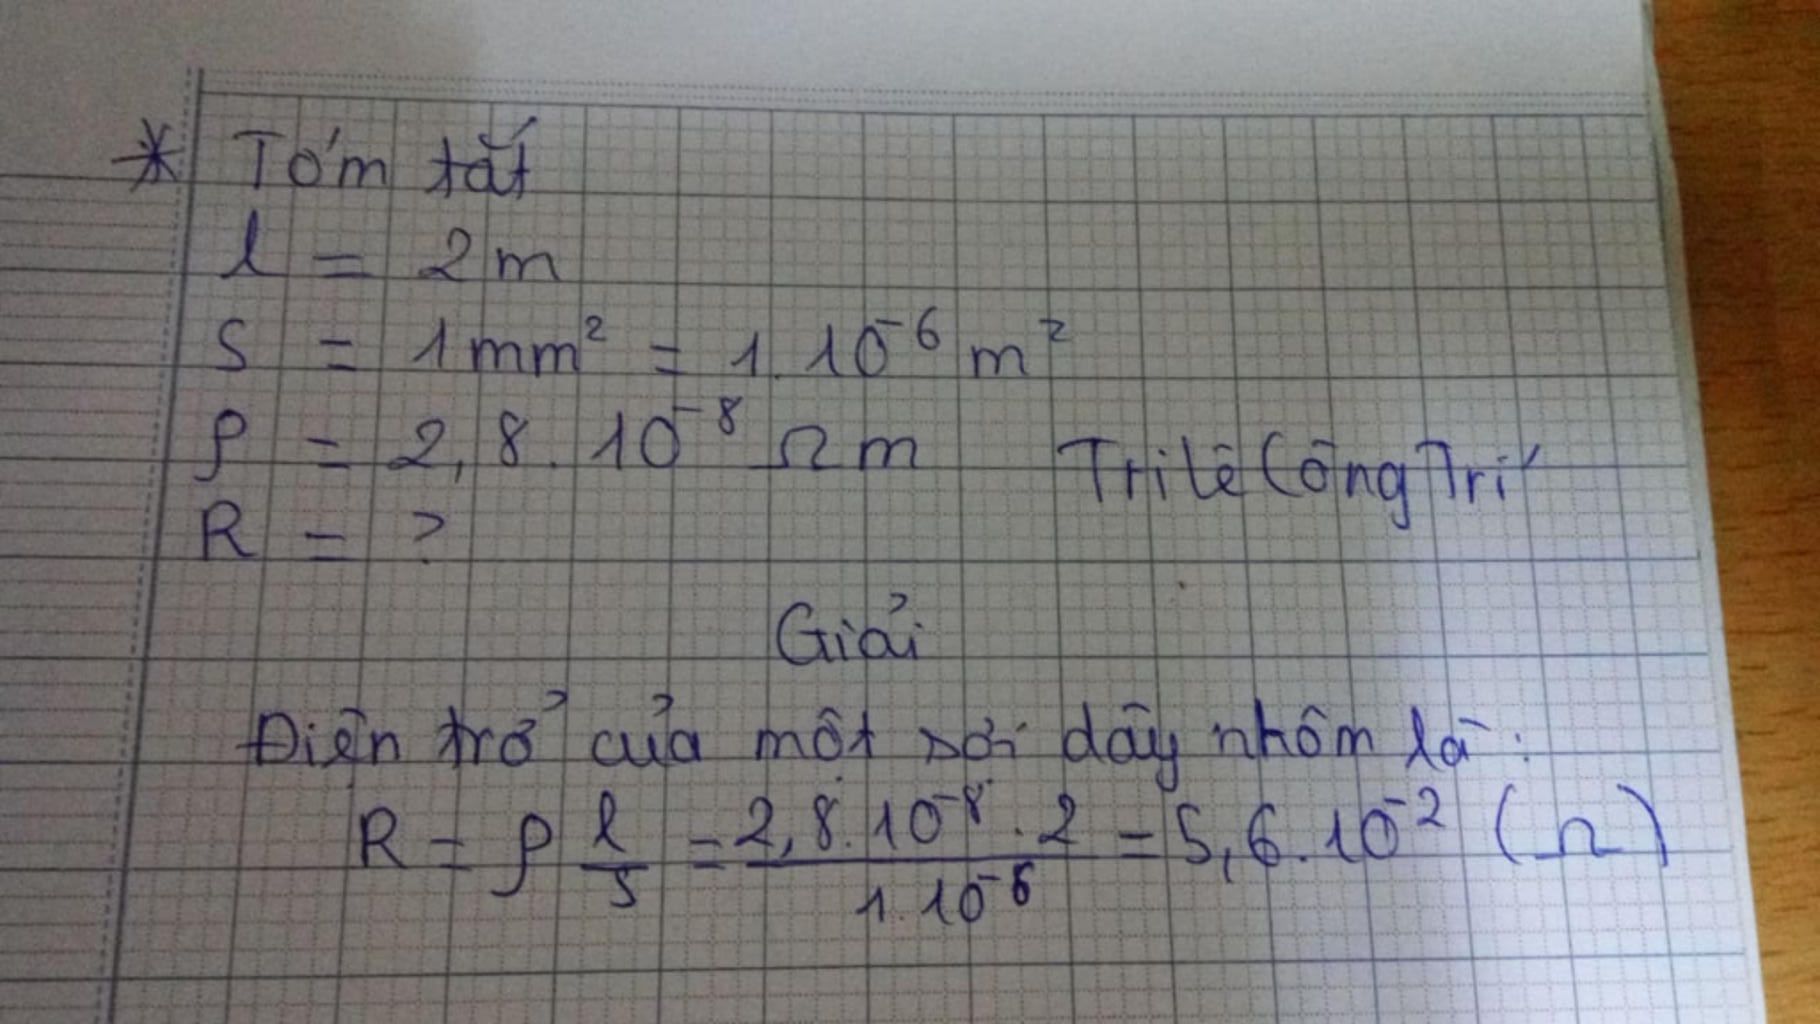 * Tóm tắt
l = 2m
S = 1mm² = 1.10⁻⁶ m²
ρ = 2,8.10⁻⁸ Ωm
Tri Lê Công Trí
R = ?
Giải
Điện trở của một sợi dây nhôm là:
R = ρ l/S = 2,8.10⁻⁸.2/1.10⁻⁶ = 5,6.10⁻² (Ω)